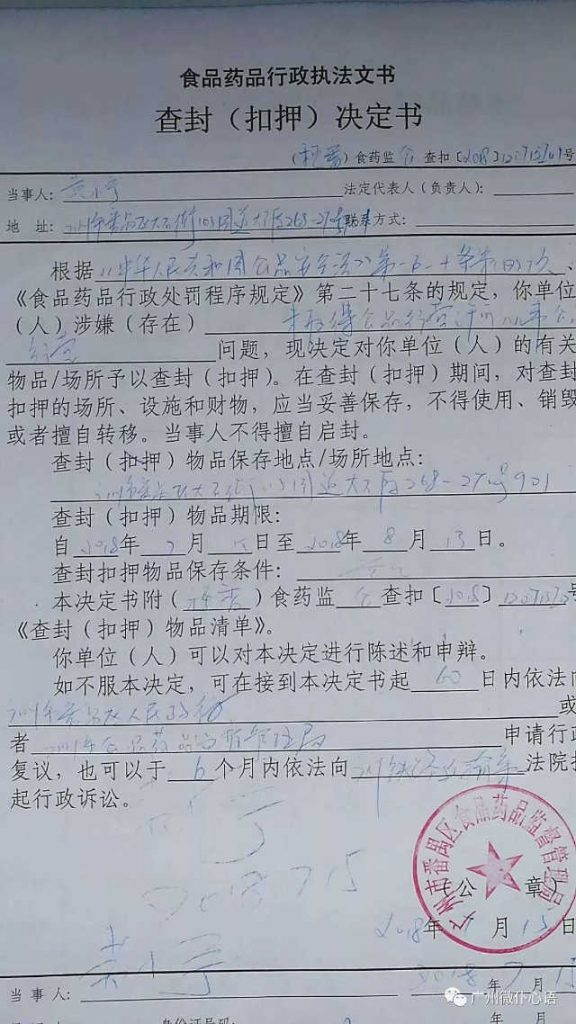 食品药品行政执法文书
查封（扣押）决定书
食药监 查扣〔2018〕 号
当事人： 法定代表人（负责人）：
地 址： 联系方式：
根据《中华人民共和国食品安全法》第一百一十条
《食品药品行政处罚程序规定》第二十七条的规定，你单位
（人）涉嫌（存在）未取得食品经营许可从事食品
经营 问题，现决定对你单位（人）的有关
物品/场所予以查封（扣押）。在查封（扣押）期间，对查封
扣押的场所、设施和财物，应当妥善保存，不得使用、销毁
或者擅自转移。当事人不得擅自启封。
查封（扣押）物品保存地点/场所地点：
查封（扣押）物品期限：
自2018年7月15日至2018年8月13日。
查封扣押物品保存条件：
本决定书附（ ）食药监 查扣〔2018〕 号
《查封（扣押）物品清单》。
你单位（人）可以对本决定进行陈述和申辩。
如不服本决定，可在接到本决定书起60日内依法向
广州市番禺区人民政府 或
者广州市食品药品监督管理局 申请行政
复议，也可以于6个月内依法向广州铁路运输 法院提
起行政诉讼。
2018 7 15
广州市番禺区食品药品监督管理局
（公 章）
2018年7月15日
2018年7月15
当事人：
广州微仆心语